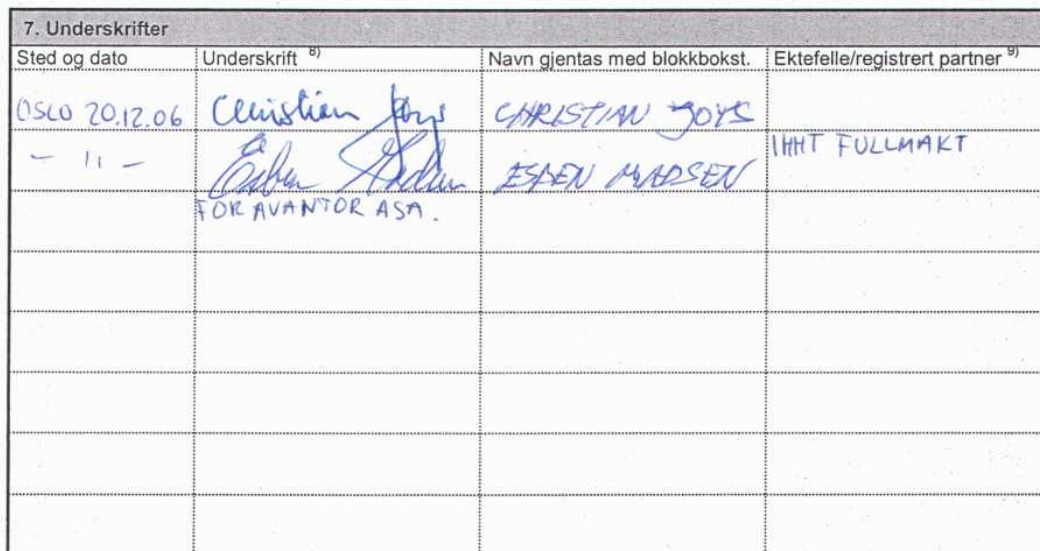 7. Underskrifter
Sted og dato Underskrift 8) Navn gjentas med blokkbokst. Ektefelle/registrert partner 9)
OSLO 20.12.06 Christian Joys CHRISTIAN JOYS
- 11 - Esben Madsen ESBEN MADSEN IHHT FULLMAKT
FOR AVANTOR ASA.